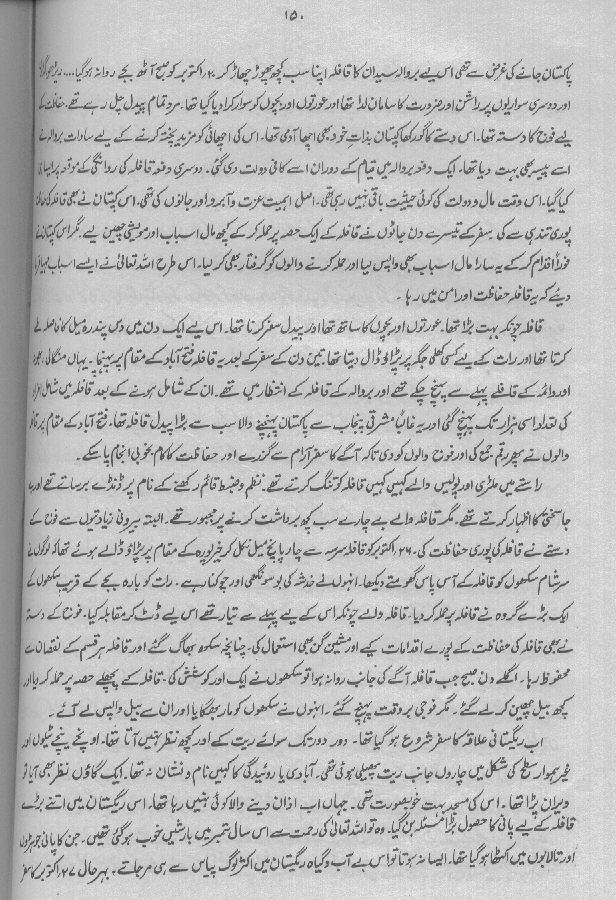 ۱۵۰
پاکستان جانے کی غرض سے تھی اس لیے بروالہ سیدان کا قافلہ اپنا سب کچھ چھوڑ چھاڑ کر ۲۰؍ اکتوبر کو صبح آٹھ بجے روانہ ہو گیا ....
اور دوسری سواریوں پر راشن اور ضرورت کا سامان لدا تھا اور عورتوں اور بچوں کو سوار کرا دیا گیا تھا۔ مرد تمام پیدل چل رہے تھے۔ حفاظت کے
لیے فوج کا دستہ تھا۔ اس دستے کا گورکھا کپتان بذات خود بھی اچھا آدمی تھا۔ اس کی اچھائی کو مزید پختہ کرنے کے لیے سادات بروالہ نے
اسے پیسہ بھی بہت دیا تھا۔ ایک دفعہ بروالہ میں قیام کے دوران اسے کافی دولت دی گئی۔ دوسری دفعہ قافلہ کی روانگی کے موقعہ پر ایسا ہی
کیا گیا۔ اس وقت مال و دولت کی کوئی حیثیت باقی نہیں رہی تھی۔ اصل اہمیت عزت و آبرو اور جانوں کی تھی۔ اس کپتان نے بھی قافلہ کی حفاظت
پوری تندہی سے کی۔ سفر کے تیسرے دن جاٹوں نے قافلہ کے ایک حصہ پر حملہ کر کے کچھ مال اسباب اور مویشی چھین لیے۔ مگر اس کپتان نے
فوراً اقدام کر کے یہ سارا مال اسباب بھی واپس لیا اور حملہ کرنے والوں کو گرفتار بھی کر لیا۔ اس طرح اللہ تعالیٰ نے ایسے اسباب مہیا کر
دیئے کہ یہ قافلہ حفاظت اور امن میں رہا۔
قافلہ چونکہ بہت بڑا تھا۔ عورتوں اور بچوں کا ساتھ تھا اور پیدل سفر کرنا تھا۔ اس لیے ایک دن میں دس پندرہ میل کا فاصلہ طے
کرتا تھا اور رات کے لیے کسی کھلی جگہ پر پڑاؤ ڈال دیتا تھا۔ تین دن کے سفر کے بعد یہ قافلہ فتح آباد کے مقام پر پہنچا۔ یہاں منگالی،
اور دائمہ کے قافلے پہلے سے پہنچ چکے تھے اور بروالہ کے قافلہ کے انتظار میں تھے۔ ان کے شامل ہونے کے بعد قافلہ میں شامل افراد
کی تعداد اسی ہزار تک پہنچ گئی اور یہ غالباً مشرقی پنجاب سے پاکستان پہنچنے والا سب سے بڑا پیدل قافلہ تھا۔ فتح آباد کے مقام پر قافلہ
والوں نے پھر رقم جمع کی اور فوج والوں کو دی تاکہ آگے کا سفر آرام سے گزرے اور حفاظت کا کام بخوبی انجام پا سکے۔
راستے میں ملٹری اور پولیس والے کہیں کہیں قافلہ کو تنگ کرتے تھے۔ نظم و ضبط قائم رکھنے کے نام پر ڈنڈے برساتے تھے اور بے
جا سختی کا اظہار کرتے تھے۔ مگر قافلہ والے بے چارے سب کچھ برداشت کرنے پر مجبور تھے۔ البتہ بیرونی زیادتیوں سے فوج کے
دستے نے قافلہ کی پوری حفاظت کی۔ ۲۶؍ اکتوبر کو قافلہ سرسہ سے چار پانچ میل نکل کر خیر پورہ کے مقام پر پڑاؤ ڈالے ہوئے تھا کہ لوگوں نے
سر شام سکھوں کو قافلہ کے آس پاس گھومتے دیکھا۔ انہوں نے خدشہ کی بو سونگھی اور چوکنا رہے۔ رات کو بارہ بجے کے قریب سکھوں کے
ایک بڑے گروہ نے قافلہ پر حملہ کر دیا۔ قافلہ والے چونکہ اس کے لیے پہلے سے تیار تھے اس لیے ڈٹ کر مقابلہ کیا۔ فوج کے دستہ
نے بھی قافلہ کی حفاظت کے پورے اقدامات کیے اور مشین گن بھی استعمال کی۔ چنانچہ سکھ بھاگ گئے اور قافلہ ہر قسم کے نقصان سے
محفوظ رہا۔ اگلے دن صبح جب قافلہ آگے کی جانب روانہ ہوا تو سکھوں نے ایک اور کوشش کی۔ قافلہ کے پچھلے حصہ پر حملہ کر دیا اور
کچھ بیل چھین کر لے گئے۔ مگر فوجی بر وقت پہنچ گئے۔ انہوں نے سکھوں کو مار بھگایا اور ان سے بیل واپس لے آئے۔
اب ریگستانی علاقہ کا سفر شروع ہو گیا تھا۔ دور دور تک سوائے ریت کے اور کچھ نظر نہیں آتا تھا۔ اونچے نیچے ٹیلوں اور
غیر ہموار سطح کی شکل میں چاروں جانب ریت پھیلی ہوئی تھی۔ آبادی یا روئیدگی کا کہیں نام و نشان نہ تھا۔ ایک گاؤں نظر بھی آیا تو
ویران پڑا تھا۔ اس کی مسجد بہت خوبصورت تھی۔ جہاں اب اذان دینے والا کوئی نہیں رہا تھا۔ اس ریگستان میں اتنے بڑے
قافلہ کے لیے پانی کا حصول بڑا مسئلہ بن گیا۔ وہ تو اللہ تعالیٰ کی رحمت سے اس سال ستمبر میں بارشیں خوب ہو گئی تھیں۔ جن کا پانی جوہڑوں
اور تالابوں میں اکٹھا ہو گیا تھا۔ ایسا نہ ہوتا تو اس بے آب و گیاہ ریگستان میں اکثر لوگ پیاس سے ہی مر جاتے۔ بہر حال ۲۷؍ اکتوبر کا سفر